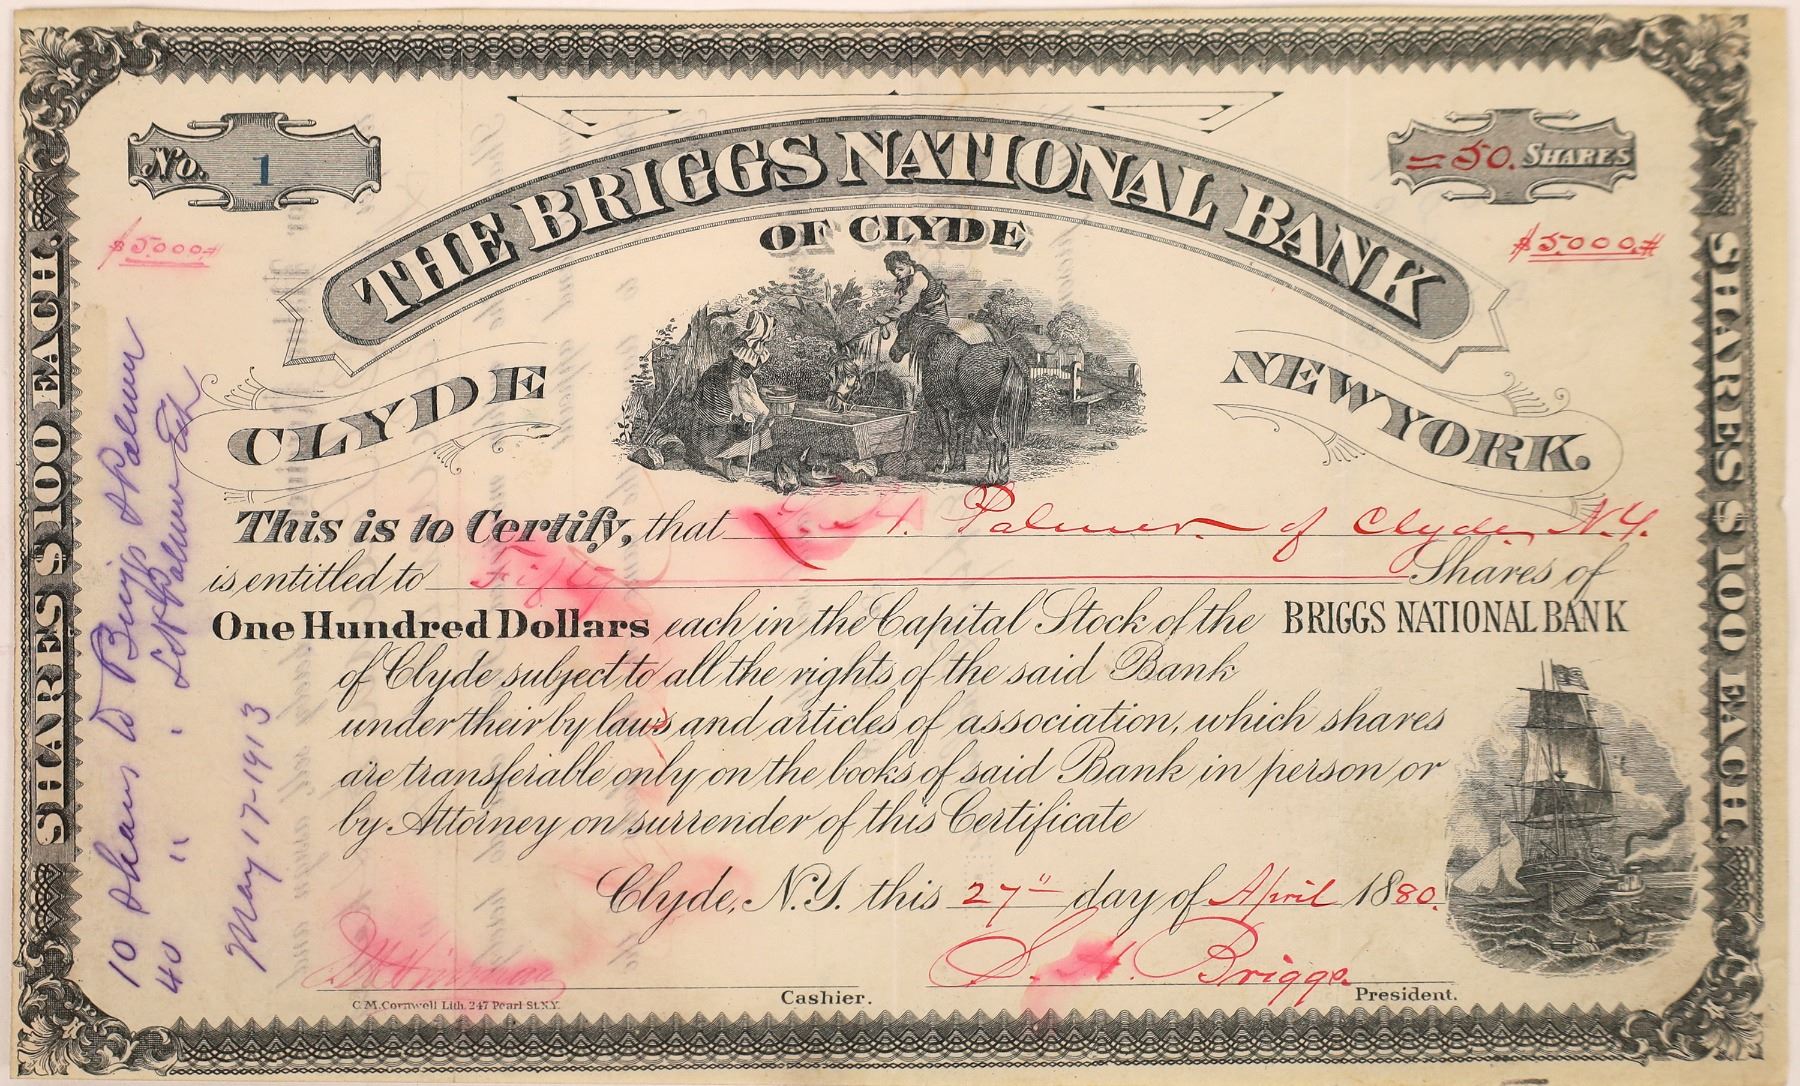 No. 1
= 50. SHARES
$5.000.#
$5.000.#
THE BRIGGS NATIONAL BANK
OF CLYDE
CLYDE
NEW YORK.
This is to Certify, that Palmer. of Clyde, N.Y.
is entitled to Fifty Shares of
One Hundred Dollars each in the Capital Stock of the BRIGGS NATIONAL BANK
of Clyde subject to all the rights of the said Bank
under their by laws and articles of association, which shares
are transferable only on the books of said Bank in person or
by Attorney on surrender of this Certificate
Clyde, N.Y. this 27" day of April 1880.
S. H. Briggs. President.
Cashier.
C.M. Cornwell Lith. 247 Pearl St. N.Y.
SHARES $100 EACH.
SHARES $100 EACH.
10 Shares to Briggs S Palmer
40 " " Palmer Est
May 17-1913